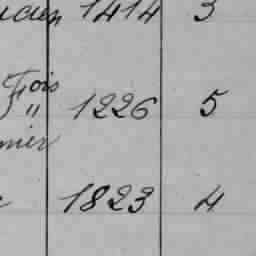 1414 3
Fois
" 1226 5
mier
1823 4